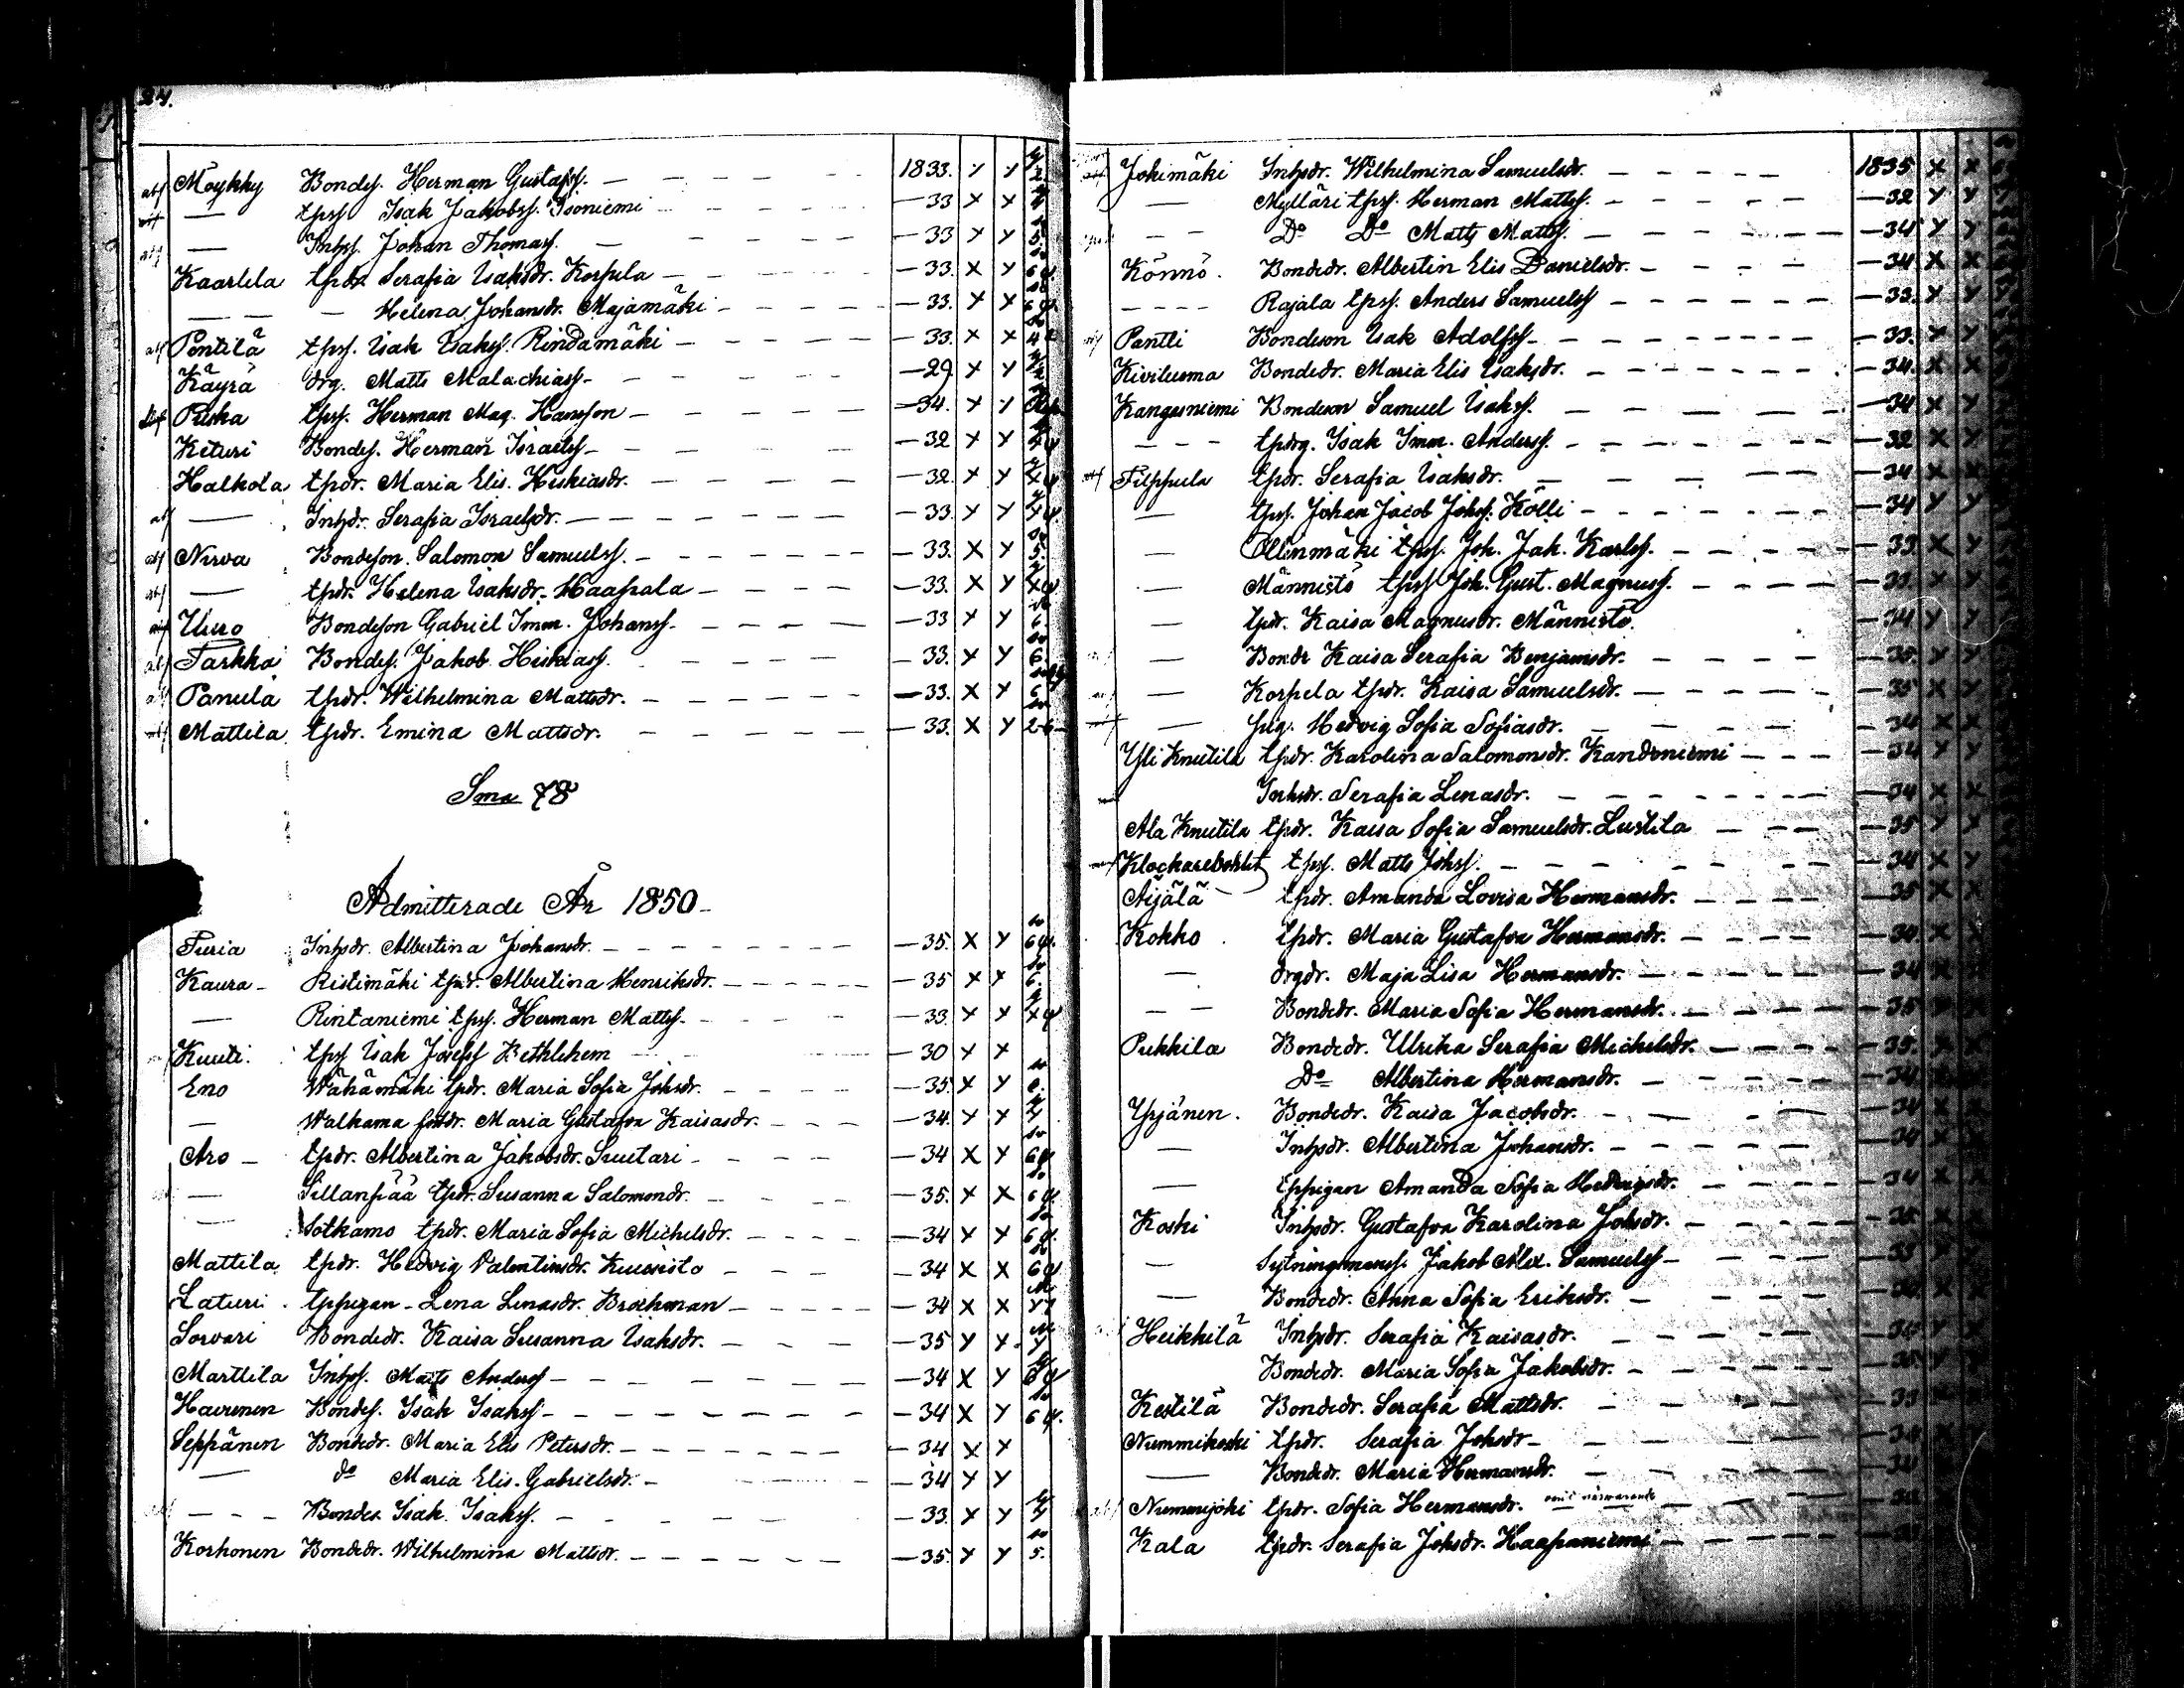 24.
Möykky Bondes. Herman Gustafss. — 1833. x x
— tpss Isak Jakobss. Isoniemi — 33 x x
— Inhss. Johan Thomass. — 33 x x 5.
Kaarlela tpdr. Serafia Isaksdr. Korpela — 33. x x 6
— Helena Johansdr. Majamäki — 33. x x 6
Pentilä tpss. Isak Isakss. Rindamäki — 33. x x 4
Käyrä drg. Matts Malachiass — 29 x x
Piska tpss. Herman Mag. Hansson — 34. x x
Keturi Bondes. Herman Israelss — 32 x x
Halkola tpdr. Maria Elis. Heskiasdr. — 32. x x
— Inhdr. Serafia Israelsdr. — 33. x x
Nirva Bondeson Salomon Samuelss. — 33. x x 5.
— tpdr. Helena Isaksdr. Haapala — 33. x x
Uuro Bondeson Gabriel Imm. Johanss — 33 x x 6.
Tarkka Bondes. Jakob Heskiass. — 33. x x 6
Panula tpdr. Wilhelmina Mattsdr. — 33. x x 6
Mattila tpdr. Emina Mattsdr. — 33. x x
Sma 78
Admitterade År 1850
Turia Inhsdr. Albertina Johansdr. — 35. x x 6
Kaura Ristimäki tpdr. Albertina Henriksdr. — 35 x x 6.
— Rintaniemi tpss. Herman Mattss — 33. x x
Kuuti tpss Isak Josefss Bethlehem — 30 x x
Eno Wähämäki tpdr. Maria Sofia Johsdr. — 35. x x
— Walkama Maria Gustafva Kaisasdr. — 34. x x
Aro tpdr. Albertina Jakobsdr. Suutari — 34 x x 6
— Sillanpää tpdr. Susanna Salomonsdr. — 35. x x 6
— Sotkamo tpdr. Maria Sofia Michelsdr. — 34 x x 6
Mattila tpdr. Hedvig Valentinsdr. Kuusisto — 34 x x 6
Laturi tppigan Lena Lenasdr. Brockman — 34 x x
Sorvari Bondedr. Kaisa Susanna Isaksdr. — 35 x x
Marttila Inhss. Matts Anderss — 34 x x
Havunen Bondes. Isak Isakss — 34 x x 6
Seppänen Bondedr. Maria Elis Petersdr. — 34 x x
— do Maria Elis. Gabrielsdr. — 34 x x
— Bondes Isak Isakss. — 33. x x
Korhonen Bondedr. Wilhelmina Mattsdr. — 35. x x 5.
Jokimäki Inhsdr. Wilhelmina Samuelsdr. — 1835 x x
— Mylläri tpss. Herman Mattss. — 32 x x
— Do Do Matts Mattss. — 34 x x
Könnö. Bondedr. Albertin Elis Danielsdr. — 34 x x
— Rajala tpss. Anders Samuelss — 33. x x
Pantti Bondeson Isak Adolfss — 33. x x
Kiviluoma Bondedr. Maria Elis Isaksdr. — 34. x x
Kangasniemi Bondeson Samuel Isakss. — 34 x x
— tpdrg. Isak Imm. Anderss. — 32 x x
Filppula tpdr. Serafia Isaksdr. — 34 x x
— tpss. Johan Jacob Johss. Kölli — 34 x x
— Ollinmäki tpss. Joh. Jak. Karlss. — 33. x x
— Männistö tpss Joh. Gust. Magnuss. — 33. x x
— tpdr. Kaisa Magnusdr. Männistö. — 34 x x
— Bonde Kaisa Serafia Benjamsdr. — 35. x x
— Korpela tpdr. Kaisa Samuelsdr. — 35 x x
— pig. Hedvig Sofia Sofiasdr. — 34 x x
Yli Knutila tpdr. Karolina Salomonsdr. Kandoniemi — 34 x x
Inhsdr. Serafia Lenasdr. — 34 x x
Ala Knutila tpdr. Kaisa Sofia Samuelsdr. Lustila — 35 x x
Klockarebohlet tpss. Matts Johss. — 34 x x
Äijälä tpdr. Amanda Lovisa Hermansdr. — 35 x x
Kokko tpdr. Maria Gustafva Hermansdr. — 34 x x
— drgdr. Maja Lisa Hermansdr. — 34 x x
— Bondedr. Maria Sofia Hermansdr. — 35 x x
Pukkila Bondedr. Ulrika Serafia Michelsdr. — 35. x x
Do Albertina Hermansdr. — 34 x x
Yrjänen. Bondedr. Kaisa Jacobsdr. — 34 x x
— Inhsdr. Albertina Johansdr. — 34 x x
— tppigan Amanda Sofia Hedvigsdr. — 34 x x
Koski Inhsdr. Gustafva Karolina Johsdr. — 35 x x
— Sytningsmanss. Jakob Alex. Samuelss — 33 x x
— Bondedr. Anna Sofia Eriksdr. — 34 x x
Heikkilä Inhsdr. Serafia Kaisasdr. — 35 x x
Bondedr. Maria Sofia Jakobsdr. — 35 x x
Kestilä Bondedr. Serafia Mattsdr. — 33
Nummikoski tpdr. Serafia Johsdr —
— Bondedr. Maria Hermansdr. — 34
Nummijoki tpdr. Sofia Hermansdr. —
Kala tpdr. Serafia Johsdr. Haapaniemi —